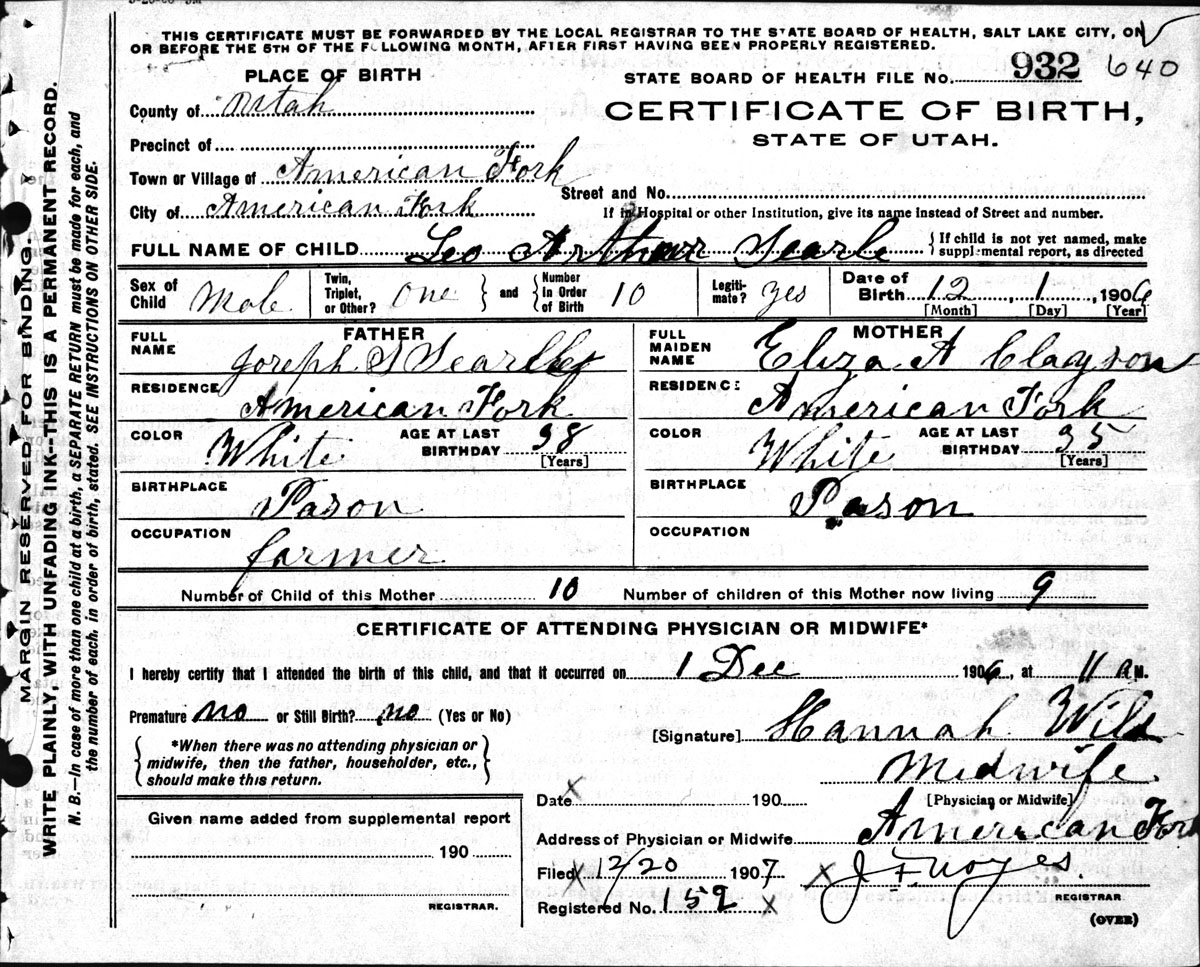 THIS CERTIFICATE MUST BE FORWARDED BY THE LOCAL REGISTRAR TO THE STATE BOARD OF HEALTH, SALT LAKE CITY, ON
OR BEFORE THE 5TH OF THE FOLLOWING MONTH, AFTER FIRST HAVING BEEN PROPERLY REGISTERED.
PLACE OF BIRTH
STATE BOARD OF HEALTH FILE No. 932 640
County of Utah
CERTIFICATE OF BIRTH,
STATE OF UTAH.
Precinct of
Town or Village of American Fork
Street and No.
City of American Fork
If in Hospital or other Institution, give its name instead of Street and number.
FULL NAME OF CHILD Leo Arthur Searle
{If child is not yet named, make
supplemental report, as directed
Sex of Child Male
Twin, Triplet, or Other? One } and { Number in Order of Birth 10
Legiti-mate? yes
Date of Birth 12, 1, 1906
[Month] [Day] [Year]
FATHER
FULL NAME Joseph S Searle
RESIDENCE American Fork
COLOR White AGE AT LAST BIRTHDAY 38
[Years]
BIRTHPLACE Pason
OCCUPATION farmer
MOTHER
FULL MAIDEN NAME Eliza A Clayson
RESIDENCE American Fork
COLOR White AGE AT LAST BIRTHDAY 35
[Years]
BIRTHPLACE Pason
OCCUPATION
Number of Child of this Mother 10 Number of children of this Mother now living 9
CERTIFICATE OF ATTENDING PHYSICIAN OR MIDWIFE*
I hereby certify that I attended the birth of this child, and that it occurred on 1 Dec 1906, at 11 a M.
Premature no or Still Birth? no (Yes or No)
{*When there was no attending physician or
midwife, then the father, householder, etc.,
should make this return.}
[Signature] Hannah Wild
Midwife
[Physician or Midwife]
Date X 190
Address of Physician or Midwife American Fork
Given name added from supplemental report
190
REGISTRAR.
Filed X 12/20 1907 X J F Noyes.
REGISTRAR
Registered No. 159 X
(OVER)
MARGIN RESERVED FOR BINDING.
WRITE PLAINLY, WITH UNFADING INK--THIS IS A PERMANENT RECORD.
N. B.—In case of more than one child at a birth, a SEPARATE RETURN must be made for each, and
the number of each, in order of birth, stated. SEE INSTRUCTIONS ON OTHER SIDE.